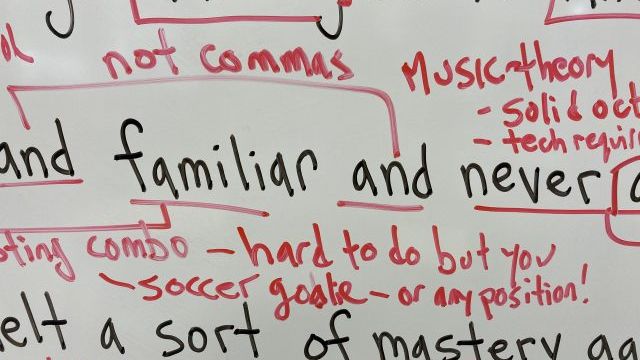 not commas
Music theory
- solid oct
- tech requir
and familiar and never
sting combo - hard to do but you
- soccer goalie - or any position!
elt a sort of mastery